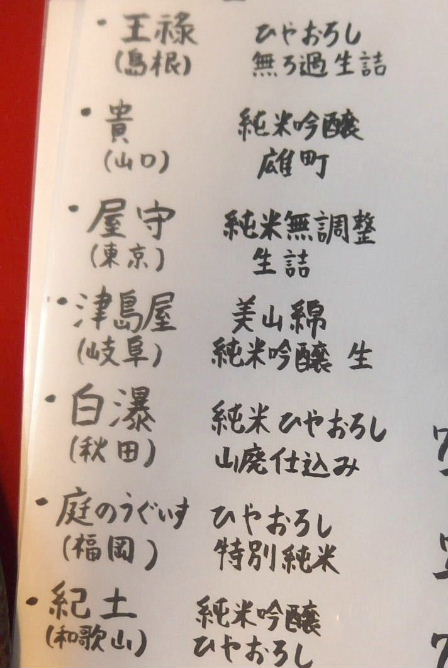 ・王祿 ひやおろし
(島根) 無ろ過生詰
・貴 純米吟醸
(山口) 雄町
・屋守 純米無調整
(東京) 生詰
・津島屋 美山綿
(岐阜) 純米吟醸 生
・白瀑 純米 ひやおろし
(秋田) 山廃仕込み
・庭のうぐいす ひやおろし
(福岡) 特別純米
・紀土 純米吟醸
(和歌山) ひやおろし